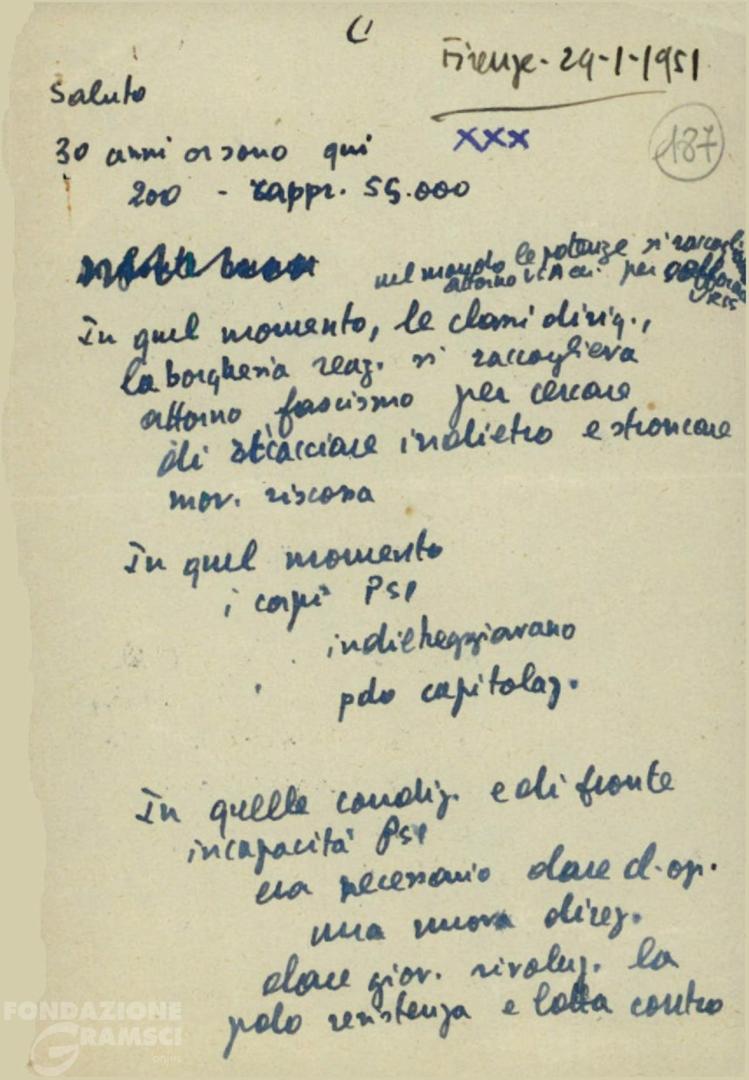 Firenze - 29-1-1951
Saluto
xxx
187
30 anni or sono qui
200 - rappr. 55.000
nel mondo le potenze si raccogli
attorno USA per
URSS
In quel momento, le classi dirig.,
la borghesia reaz. si raccoglieva
attorno fascismo per cercare
di ricacciare indietro e stroncare
mov. riscossa
In quel momento
i capi PSI
indietreggiavano
pdo capitolaz.
In quelle condiz. e di fronte
incapacità PSI
era necessario dare cl. op.
una nuova direz.
dare giov. rivoluz. la
pdo resistenza e lotta contro
FONDAZIONE
GRAMSCI
onlus